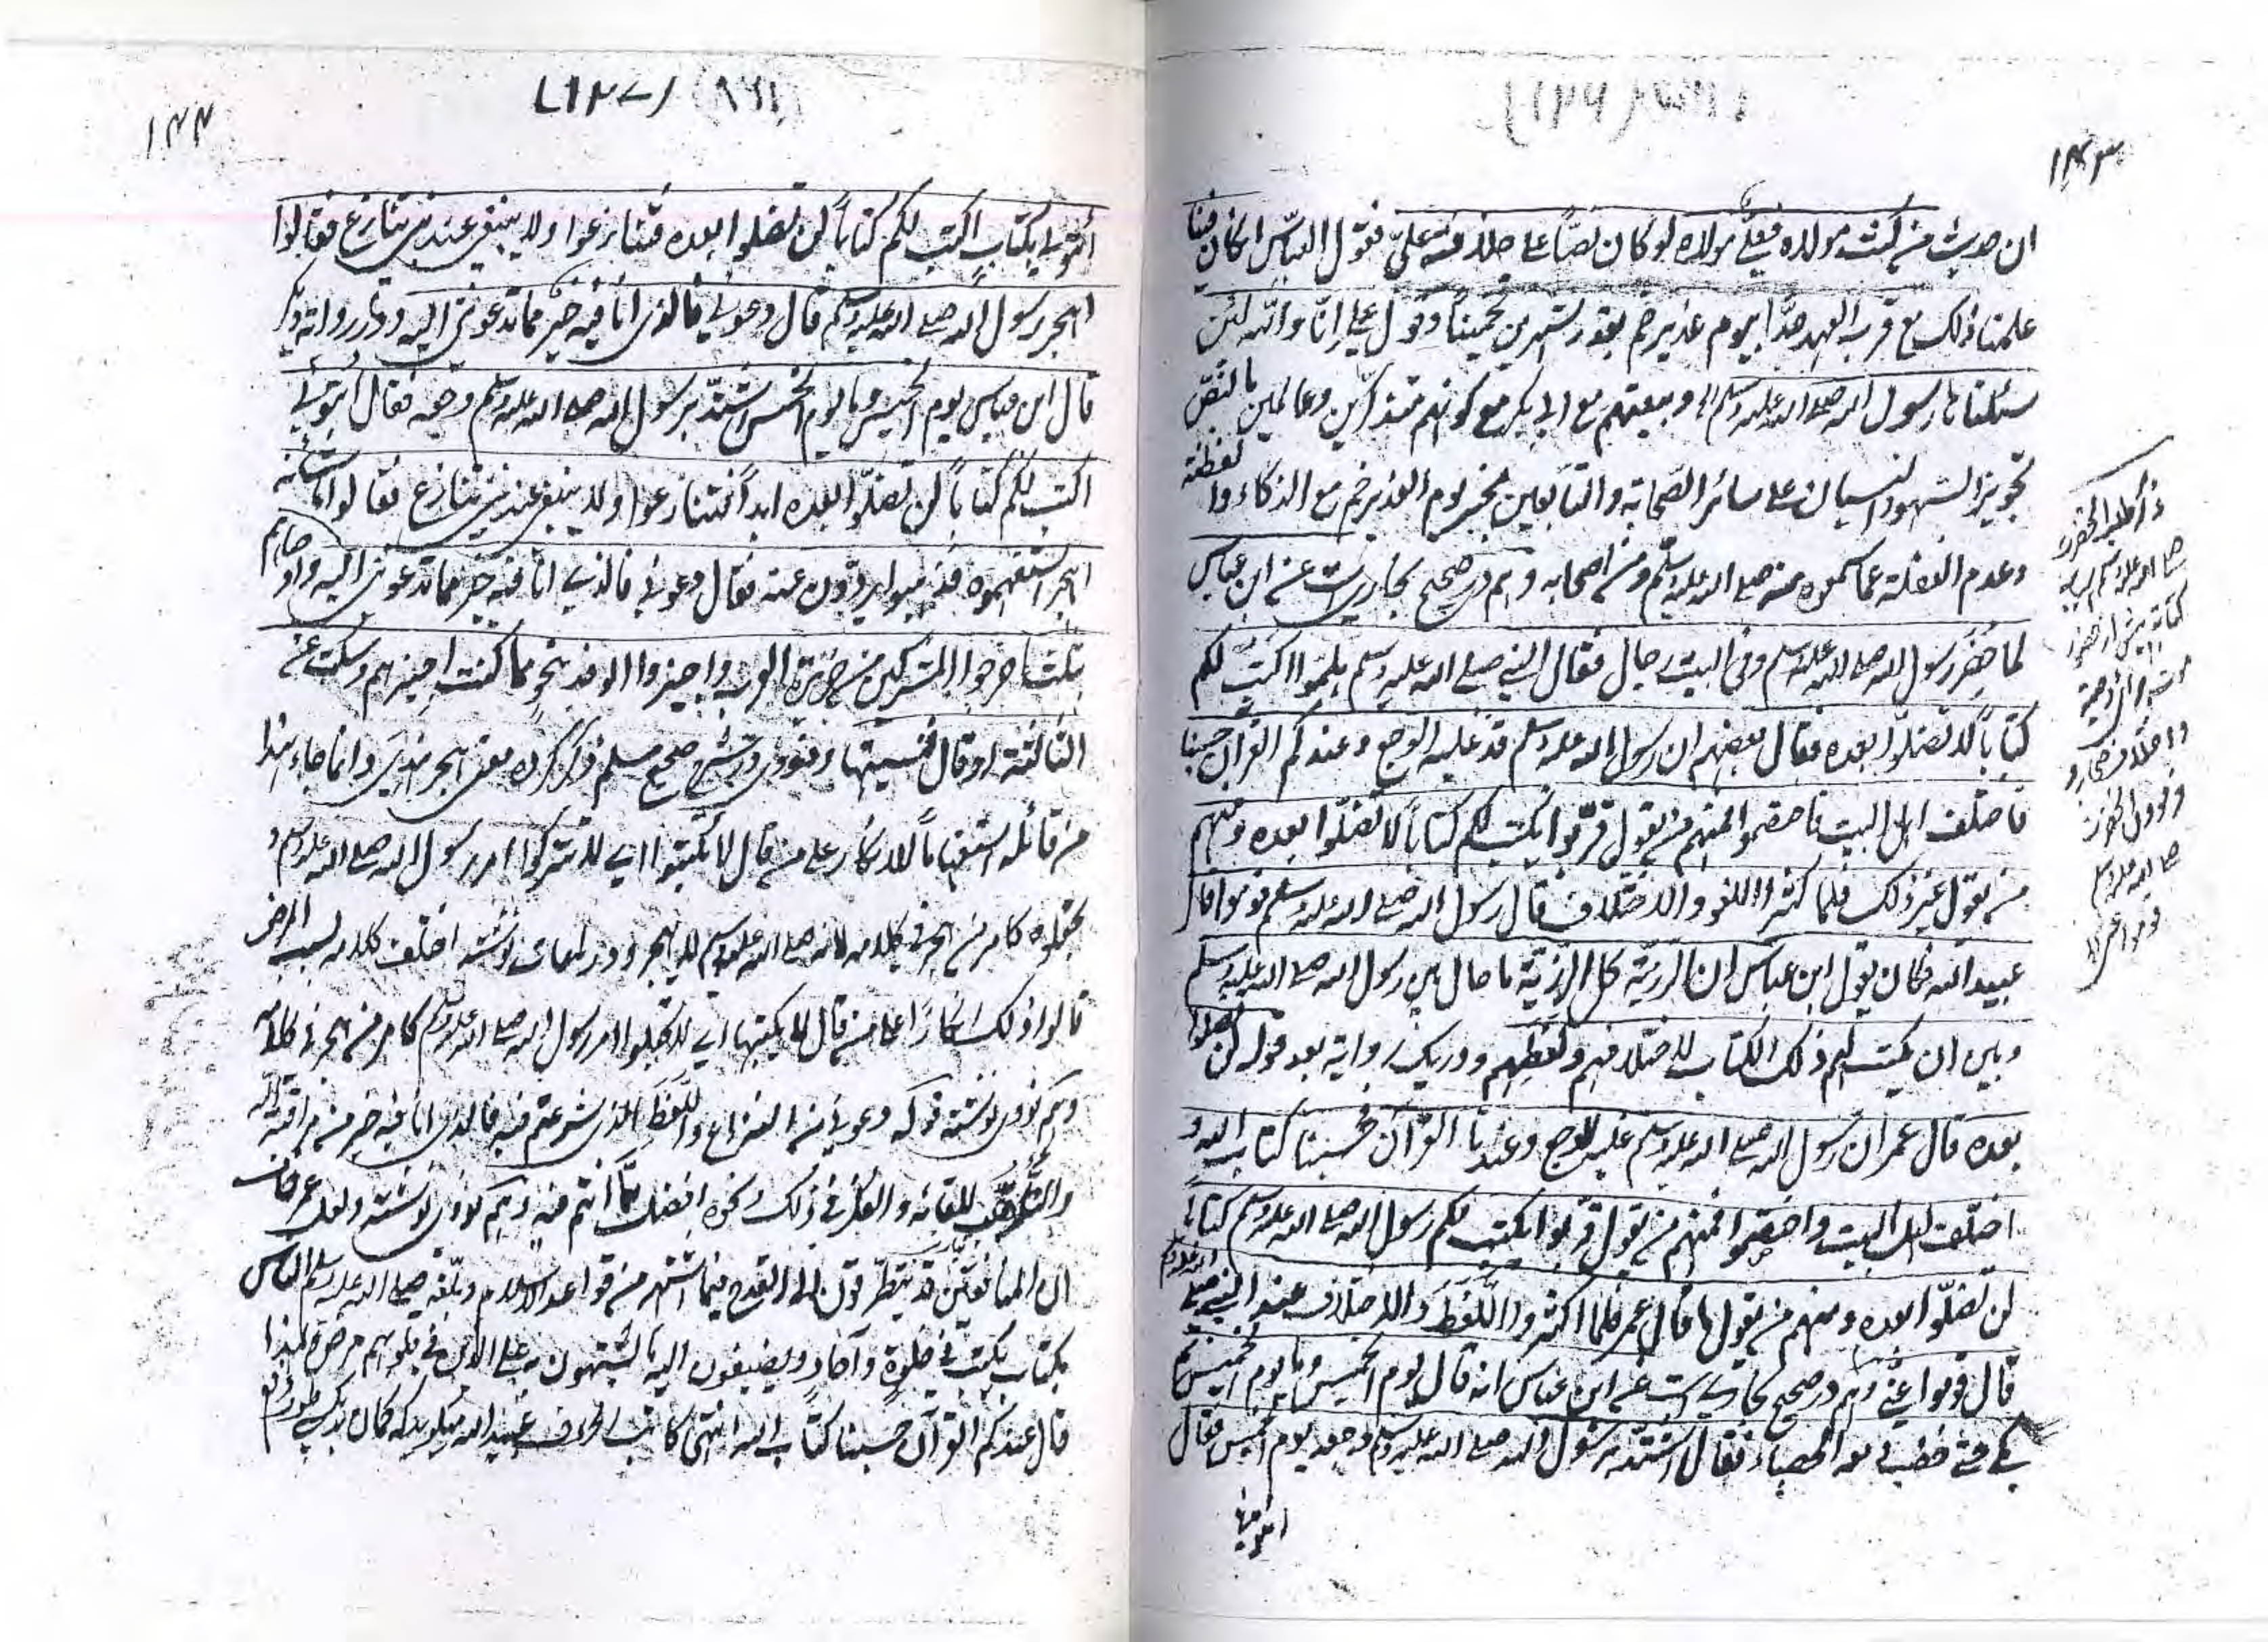 ۱۴۳
ان حدیث من کنت مولاه فعلی مولاه لو کان نصّاً علی خلافة علیّ فقول العبّاس ان کان فینا
علمنا ذلک مع قرب العهد جدّاً بیوم غدیر خم بقدر شهرین تخمیناً وقول علی انّا والله لئن
سئلناها رسول الله صلی الله علیه وسلم الخ وبیعتهم مع ابی بکر مع کونهم متذکرین وعالمین بالنصّ
تجویز السهو والنسیان علی سائر الصّحابة والتابعین بخبر یوم الغدیر خم مع الذکاء والفطنة
وعدم الغفلة عما سمعوه منه صلی الله علیه وسلم ومن اصحابه وهم در صحیح بخاری است عن ابن عباس
لما حضر رسول الله صلی الله علیه وسلم وفی البیت رجال فقال النبی صلی الله علیه وسلم هلموا اکتب لکم
کتاباً لا تضلّوا بعده فقال بعضهم ان رسول الله صلی الله علیه وسلم قد غلبه الوجع وعندکم القرآن حسبنا
فاختلف اهل البیت فاختصموا فمنهم من یقول قرّبوا یکتب لکم کتاباً لا تضلّوا بعده ومنهم
من یقول غیر ذلک فلما کثر اللغو والاختلاف قال رسول الله صلی الله علیه وسلم قوموا قال
عبید الله فکان یقول ابن عباس ان الرزیّة کل الرزیّة ما حال بین رسول الله صلی الله علیه وسلم
وبین ان یکتب لهم ذلک الکتاب لاختلافهم ولغطهم ودر یک روایة بعد قوله لن تضلوا
بعده قال عمر ان رسول الله صلی الله علیه وسلم غلبه الوجع وعندنا القرآن فحسبنا کتاب الله و
اختلف اهل البیت واختصموا فمنهم من یقول قربوا یکتب لکم رسول الله صلی الله علیه وسلم کتاباً
لن تضلّوا بعده ومنهم من یقول ما قال عمر فلما اکثروا اللّغط والاختلاف عند النبی صلی الله علیه وسلم
قال قوموا عنّی وهم در صحیح بخاری است عن ابن عباس انه قال یوم الخمیس وما یوم الخمیس ثم
بکی حتی خضب دمعه الحصباء فقال اشتد برسول الله صلی الله علیه وسلم وجعه یوم الخمیس فقال
ائتونی
صلی الله علیه وسلم
قوموا عنی
۱۴۴
ائتونی بکتاب اکتب لکم کتاباً لن تضلوا بعده فتنازعوا ولا ینبغی عند نبی تنازع فقالوا
اهجر رسول الله صلی الله علیه وسلم قال دعونی فالذی انا فیه خیر مما تدعوننی الیه ودر روایة دیگر
قال ابن عباس یوم الخمیس وما یوم الخمیس اشتدّ برسول الله صلی الله علیه وسلم وجعه فقال ائتونی
اکتب لکم کتاباً لن تضلّوا بعده ابداً فتنازعوا ولا ینبغی عند نبی تنازع فقالوا ما شأنه
اهجر استفهموه فذهبوا یردّون عنه فقال دعونی فالذی انا فیه خیر مما تدعوننی الیه واوصاهم
بثلث اخرجوا المشرکین من جزیرة العرب واجیزوا الوفد بنحو ما کنت اجیزهم وسکت عن
الثالثة او قال فنسیتها ونووی در شرح صحیح مسلم ذکر کرده معنی اهجر هذی وانما جاء هذا
من قائله استفهاماً للانکار علی من قال لا تکتبوا ای لا تترکوا امر رسول الله صلی الله علیه وسلم و
تجعلوه کامر من هجر فی کلامه لانه صلی الله علیه وسلم لا یهجر ودر لمعات نوشته اختلف کلامه بسبب المرض
قالوا ذلک انکاراً علی من قال لا یکتبها ای لا تجعلوا امر رسول الله صلی الله علیه وسلم کامر من هجر فی کلامه
وهم نووی نوشته قوله دعونی من النزاع واللّغط الذی شرعتم فیه فالذی انا فیه خیر من مراقبة الله
والتأهّب للقائه والفکر فی ذلک ونحوه افضل مما انتم فیه وهم نووی نوشته ولعل عمر خاف
ان المنافقین قد یتطرّقون الی القدح فیما اشتهر من قواعد الاسلام وبلّغه صلی الله علیه وسلم الناس
بکتاب یکتب فی خلوة وآحاد ویضیفون الیه ما یشبهون به علی الذین فی قلوبهم مرض ولهذا
قال عندکم القرآن حسبنا کتاب الله انتهی کاتب الحروف عبید الله میگوید که